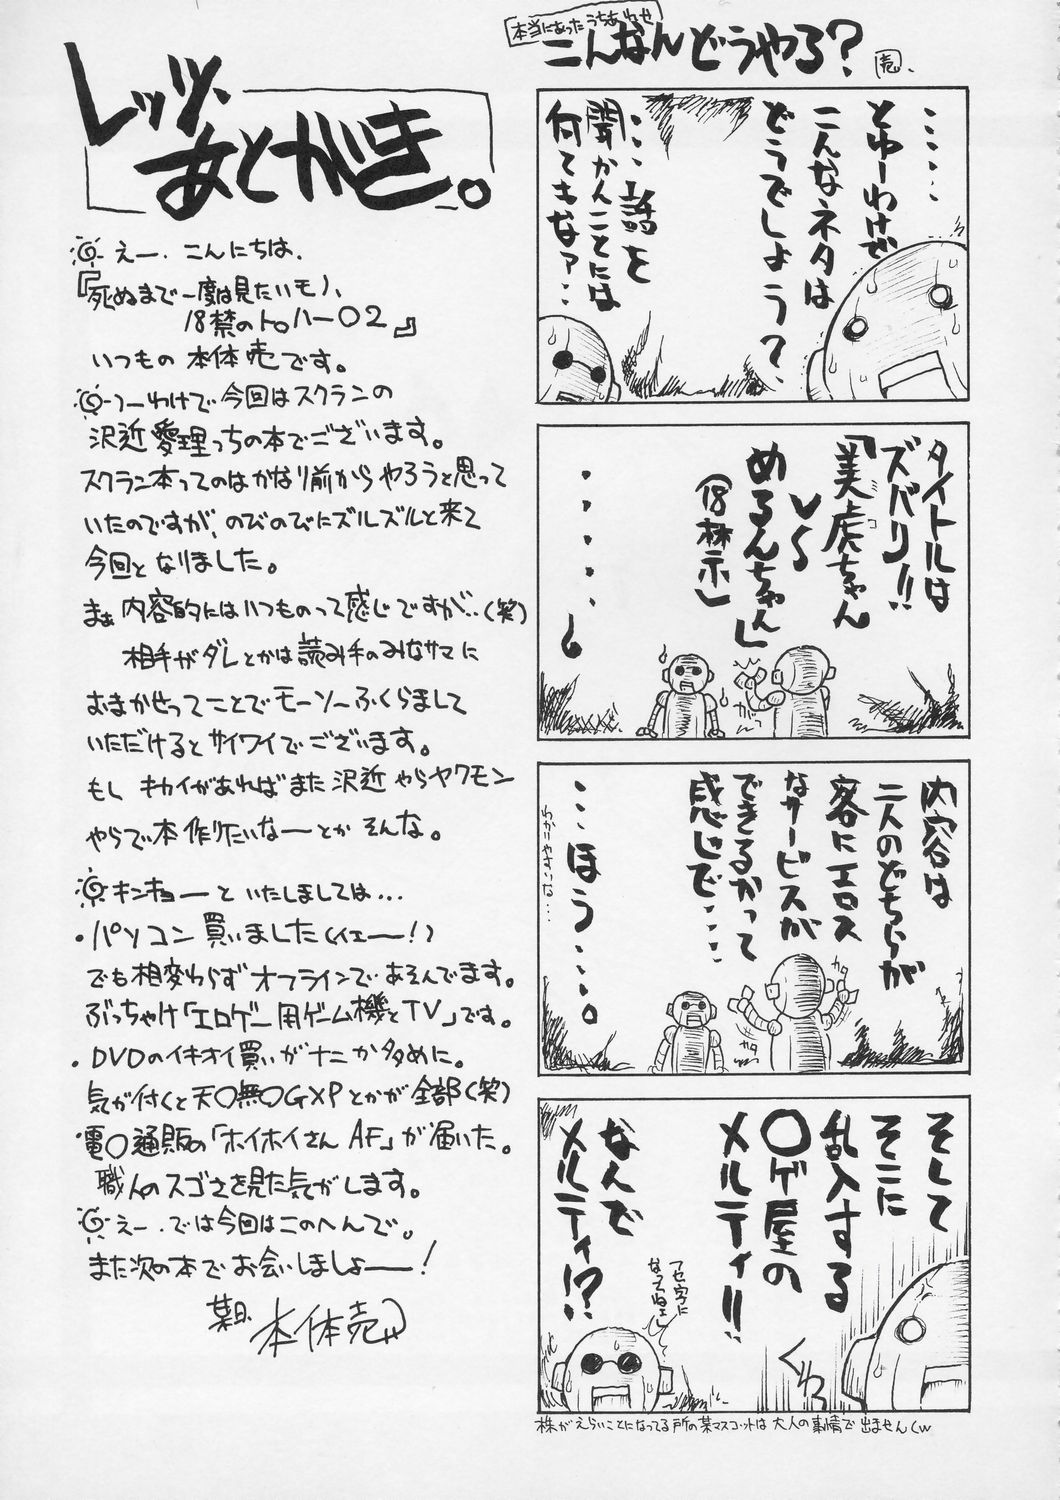 レッツ、
あとがき。
えー、こんにちは、
『死ぬまで一度は見たいモノ、
18禁のトロハー02』
いつもの 本体売です。
つーわけで今回はスクランの
沢近愛理っちの本でございます。
スクラン本ってのはかなり前からやろうと思って
いたのですが、のびのびにズルズルと来て
今回となりました。
まぁ内容的にはいつものって感じですが‥(笑)
相手がダレとかは読み手のみなサマに
おまかせってことでモーソーふくらまして
いただけるとサイワイでございます。
もし キカイがあればまた沢近やらヤクモン
やらで本作りたいなーとか そんな。
キンキョーと いたしましては…
・パソコン買いました(イェー!)
でも相変わらずオフラインであそんでます。
ぶっちゃけ「エロゲー用ゲーム機とTV」です。
・DVDのイキオイ買いがナニか多めに。
気が付くと天〇無〇GXPとかが全部(笑)
電〇通販の「ホイホイさん AF」が届いた。
職人のスゴさを見た気がします。
えー、では今回はこのへんで。
また次の本でお会いしましょー!
本体売
本当にあったうちあわせ
こんなんどうやる?
売
……
とゆーわけで
こんなネタは
どうでしょう?
…話を
聞かんことには
何てもなァ…
タイトルは
ズバリ!!
「美虎ちゃん
ミコ
VS
めるんちゃん」
(18禁)
・・・・・
内容は
二人のどちらが
客にエロス
なサービスが
できるかって
感じで…
…ほう…。
わかりやすいな…
カタ
カタ
そして
そこに
乱入する
〇ゲ屋の
メルティ!!
なんで
メルティ!?
アセ字に
なってねェし
くわっ
株がえらいことになってる所の某マスコットは大人の事情で出ませんw